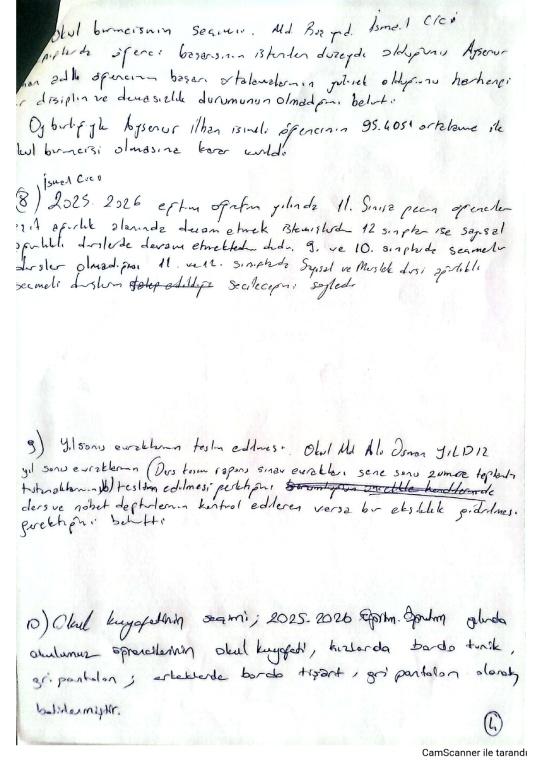 Okul birincisinin seçimi. Md Baş yrd. İsmail CİCİ
öğrenci başarısının istenilen düzeyde olduğunu Ayşenur
adlı öğrencinin başarı ortalamalarının yüksek olduğunu herhangi
disiplin ve devamsızlık durumunun olmadığını belirtti
Oy birliğiyle Ayşenur ilhan isimli öğrencinin 95.4051 ortalama ile
kul birincisi olmasına karar verildi.
İsmail CİCİ
8) 2025-2026 eğitim öğretim yılında 11. Sınıfa geçen öğrenciler
ağırlık alanında devam etmek istemişlerdir 12 sınıflar ise sayısal
ağırlıklı derslerde devam etmektedir dedi. 9. ve 10. sınıflarda seçmeli
dersler olmadığını 11. ve 12. sınıflarda Sayısal ve Meslek dersi ağırlıklı
seçmeli derslerin talep edildiği seçileceğini söyledi
9) Yıl sonu evraklarının teslim edilmesi. Okul Md Ali Osman YILDIZ
yıl sonu evraklarının (Ders kesim raporu sınav evrakları sene sonu zümre toplantı
tutanaklarının) teslim edilmesi gerektiğini
ders ve nöbet defterlerinin kontrol edilerek varsa bir eksiklik giderilmesi
gerektiğini belirtti
10) Okul kıyafetinin seçimi; 2025-2026 Eğitim-Öğretim yılında
okulumuz öğrencilerinin okul kıyafeti, kızlarda bordo tunik,
gri pantalon; erkeklerde bordo tişört, gri pantalon olarak
belirlenmiştir.
4
CamScanner ile tarandı